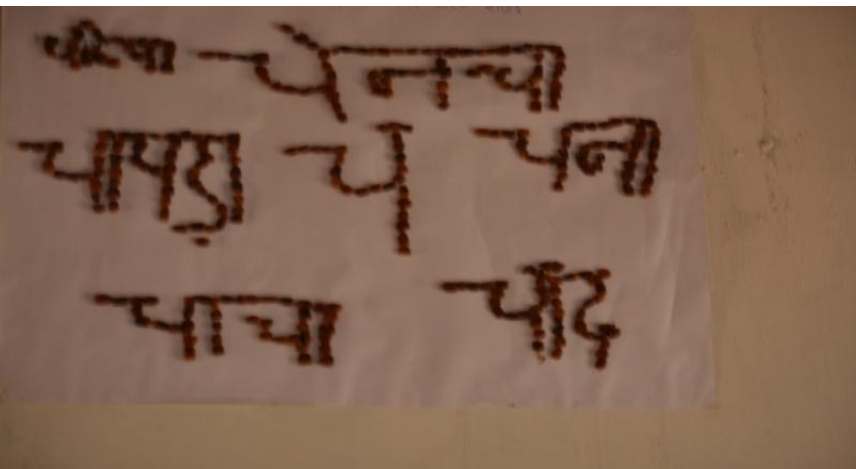 चेनचा
चापड़ा च चना
चाचा चाँद